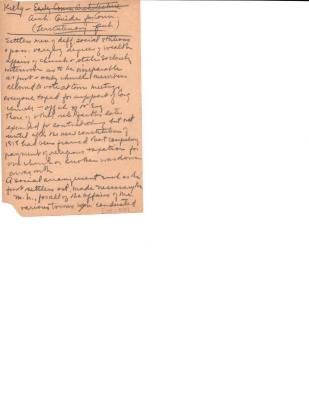 Kelly - Early Conn Architecture
Arch. Guide for Conn.
(Tercentenary Pub.)
Settlers men of diff. social stations
& poss. varying degrees of wealth
affairs of church & state so closely
interwoven as to be inseparable
at first - only church members
allowed to vote at town meeting
everyone taxed for support of Cong
church - off.
Those of other
exempted for but not
until after the new constitution of
1818 had been framed that compulsory
payment of religious taxation for
one church or another was down
away with
A social arrangement such as the
first settlers set, made necessary the
m. h., for all of the affairs of the
various towns were conducted